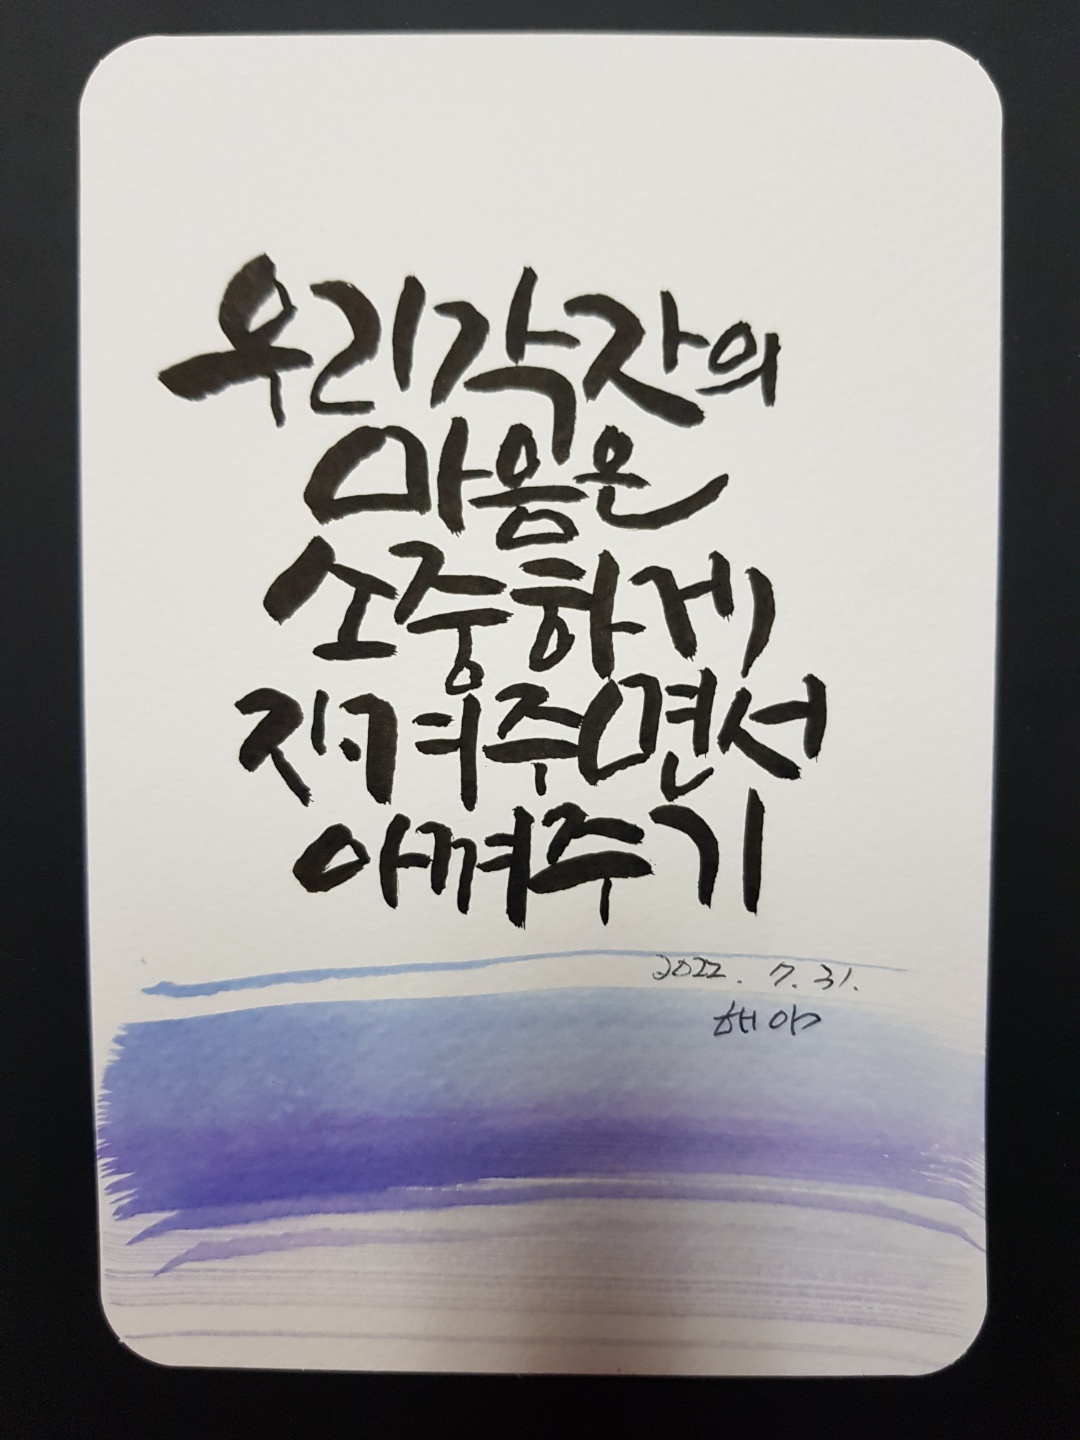 우리 각자의
마음은
소중하게
지켜주면서
아껴주기
2022. 7. 31.
해야